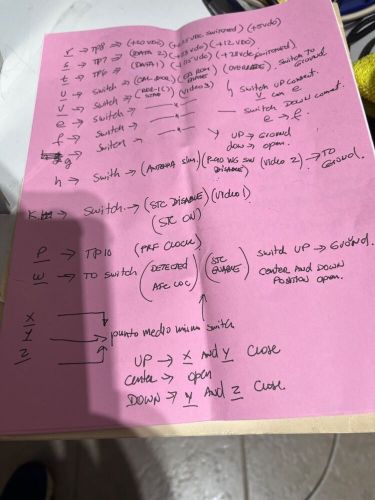 r → TP8 → (+20VDC) (+28VDC SWITCHED) (+5VDC)
s → TP7 → (DATA 2) (+28VDC) (+12VDC)
t → TP6 → (DATA 1) (+115VDC) (+28VDC switched)
u → Switch → (CAL) (EA ROM ENABLE) (OVERRIDE). Switch To GROUND
V → Switch → (Video 3) Switch UP connect. V con e
e → Switch → —"— Switch DOWN connect. e → f.
f → Switch → —"—
g → Switch → —"— UP → Ground
down → open.
h → Switch → (ANTENNA SIM.) (DISABLE) (Video 2) → TO Ground.
K → Switch → (STC DISABLE) (Video 1)
(STC ON)
P → TP10 (PRF CLOCK)
w → TO Switch (DETECTED AFC LOC) (STC ENABLE) Switch UP → GROUND
CENTER AND DOWN POSITION open.
X
Y → punto medio mini switch
Z
UP → X AND Y Close
Center → open
DOWN → Y AND Z Close.